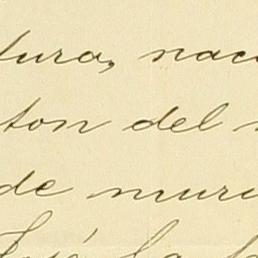 tura, nac
ton del
de muri
José la